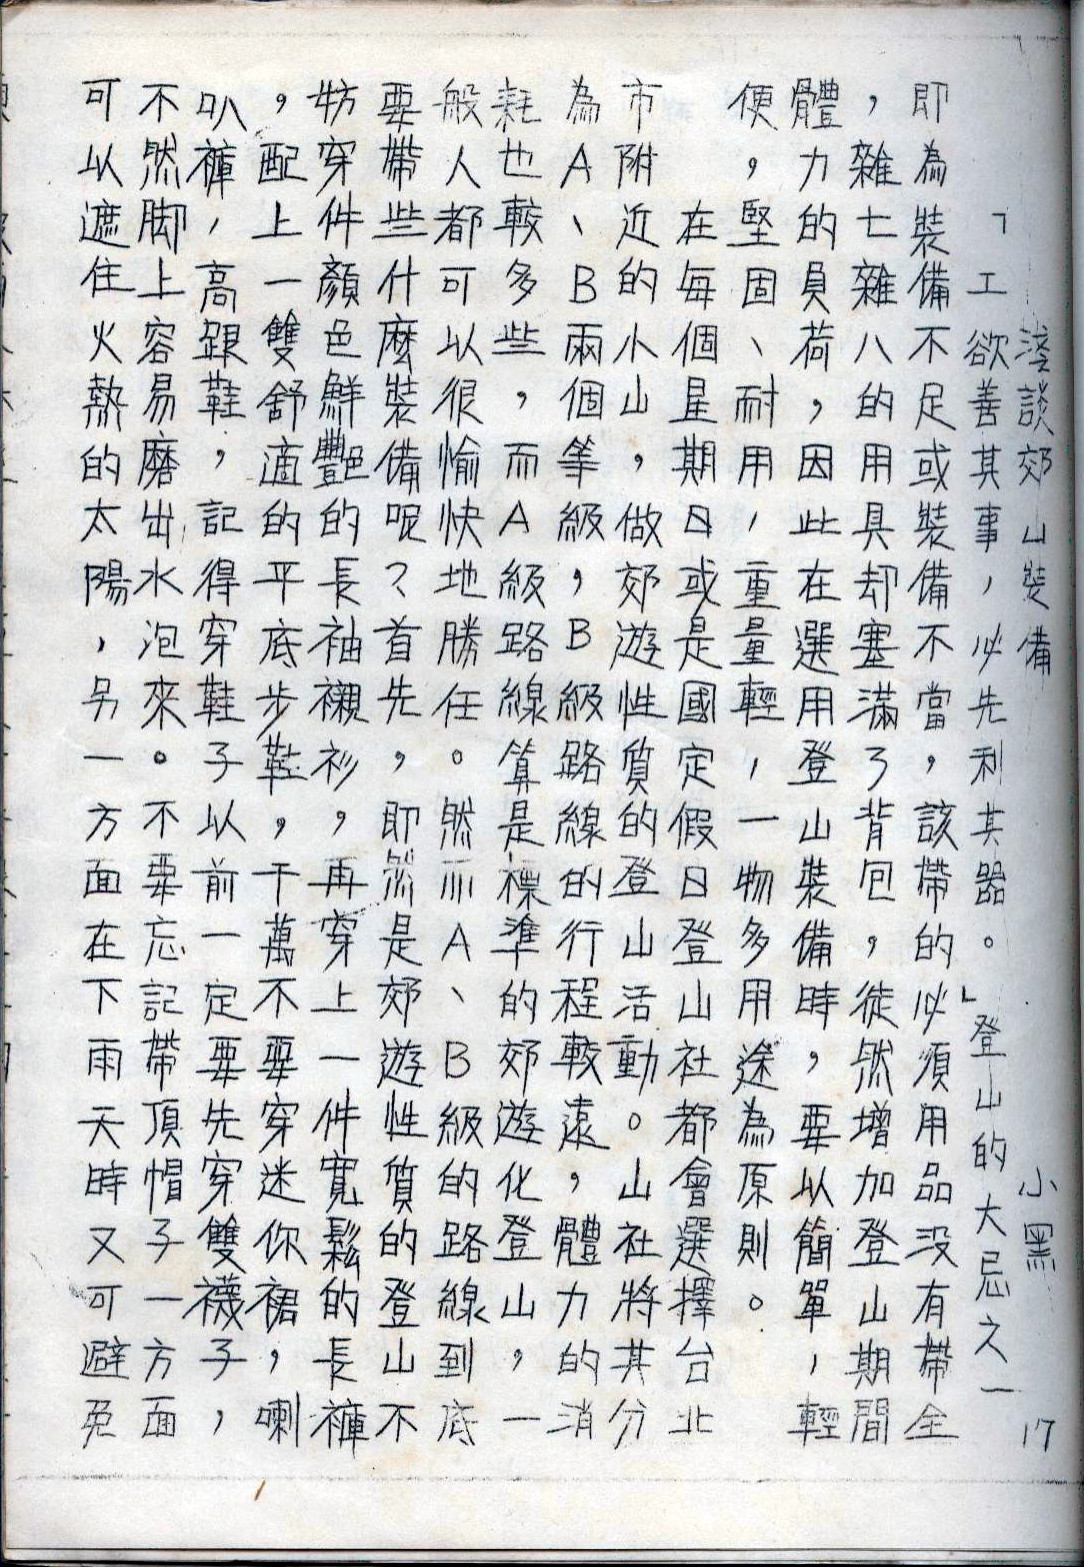 淺談郊山裝備 小黑 17
「工欲善其事，必先利其器。」登山的大忌之一
即為裝備不足或裝備不當，該帶的必須用品沒有帶全
，雜七雜八的用具却塞滿了背包，徒然增加登山期間
體力的員荷，因此在選用登山裝備時，要以簡單，輕
便，堅固、耐用，重量輕，一物多用途為原則。
在每個星期日或是國定假日登山社都會選擇台北
市附近的小山，做郊遊性質的登山活動。山社將其分
為A、B兩個等級，B級路線的行程較遠，體力的消
耗也較多些，而A級路線算是標準的郊遊化登山，一
般人都可以很愉快地勝任。然而A、B級的路線到底
要帶些什麼裝備呢？首先，即然是郊遊性質的登山不
妨穿件顏色鮮豔的長袖襯衫，再穿上一件寬鬆的長褲
，配上一雙舒適的平底步鞋，千萬不要穿迷你裙，喇
叭褲，高跟鞋，記得穿鞋子以前一定要先穿雙襪子，
不然脚上容易磨出水泡來。不要忘記帶頂帽子一方面
可以遮住火熱的太陽，另一方面在下雨天時又可避免